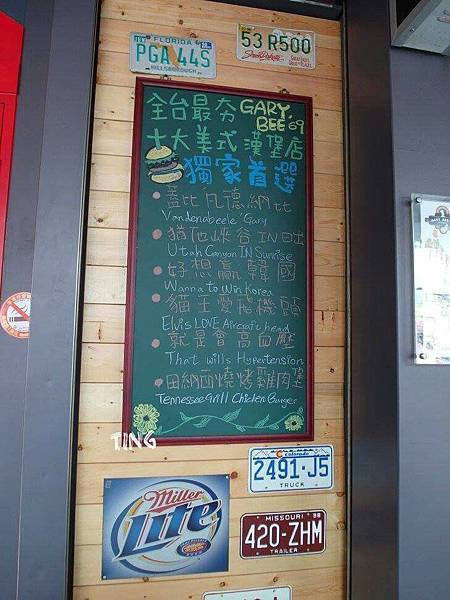 FLORIDA
PGA 44S
HILLSBOROUGH
53 R500
South Dakota
GREAT FACES. GREAT PLACES.
全台最夯 GARY BEE 69
十大美式漢堡店
獨家首選
蓋比凡德納比
Vandenabeele Gary
猶他峽谷IN日出
Utah Canyon IN Sunrise
好想贏韓國
Wanna to Win Korea
貓王愛飛機頭
Elvis LOVE Aircraft head
就是會高血壓
That wills Hypertension
田納西燒烤雞肉堡
Tennessee Grill Chicken Burger
TING
Colorado
2491-J5
TRUCK
Miller
Lite
MISSOURI 88
420-ZHM
TRAILER